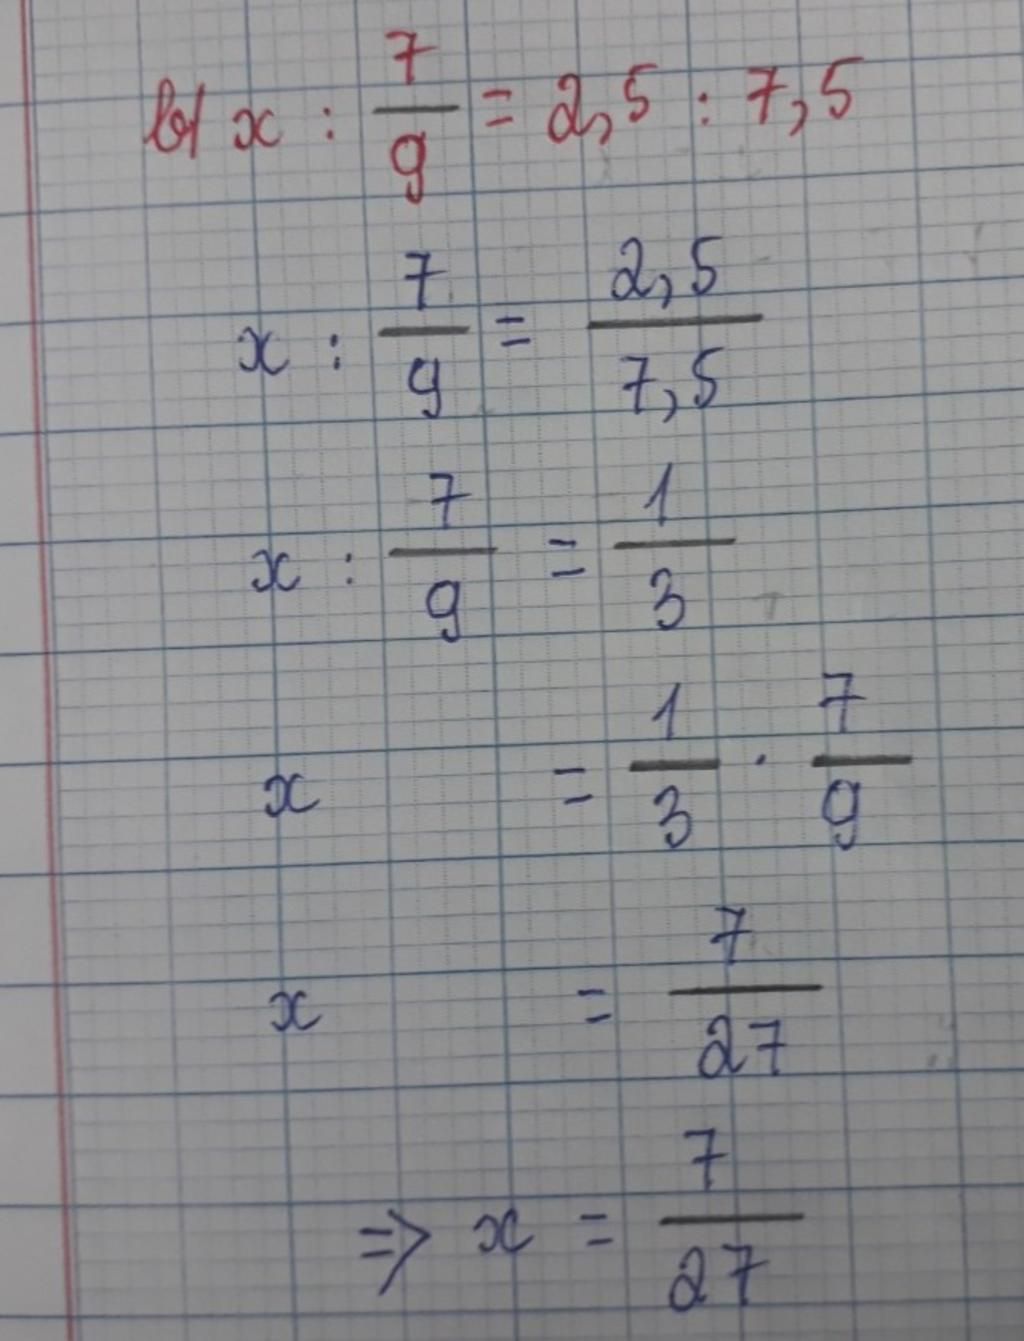 b/ x : 7/9 = 2,5 : 7,5
x : 7/9 = 2,5/7,5
x : 7/9 = 1/3
x = 1/3 . 7/9
x = 7/27
=> x = 7/27